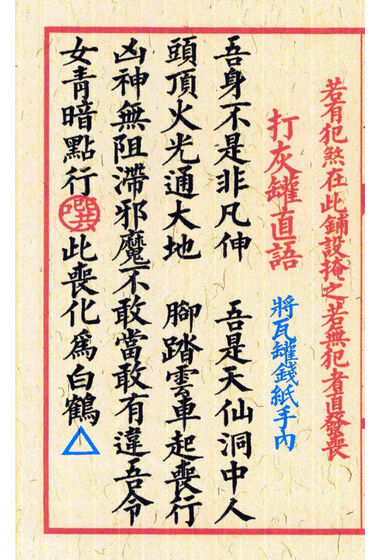 若有犯煞在此鋪設掩之若無犯者直發喪
打灰罐直語
將瓦罐錢紙手內
吾身不是非凡伸 吾是天仙洞中人
頭頂火光通大地 腳踏雲車起喪行
凶神無阻滯邪魔不敢當敢有違吾令
女青暗點行 此喪化為白鶴